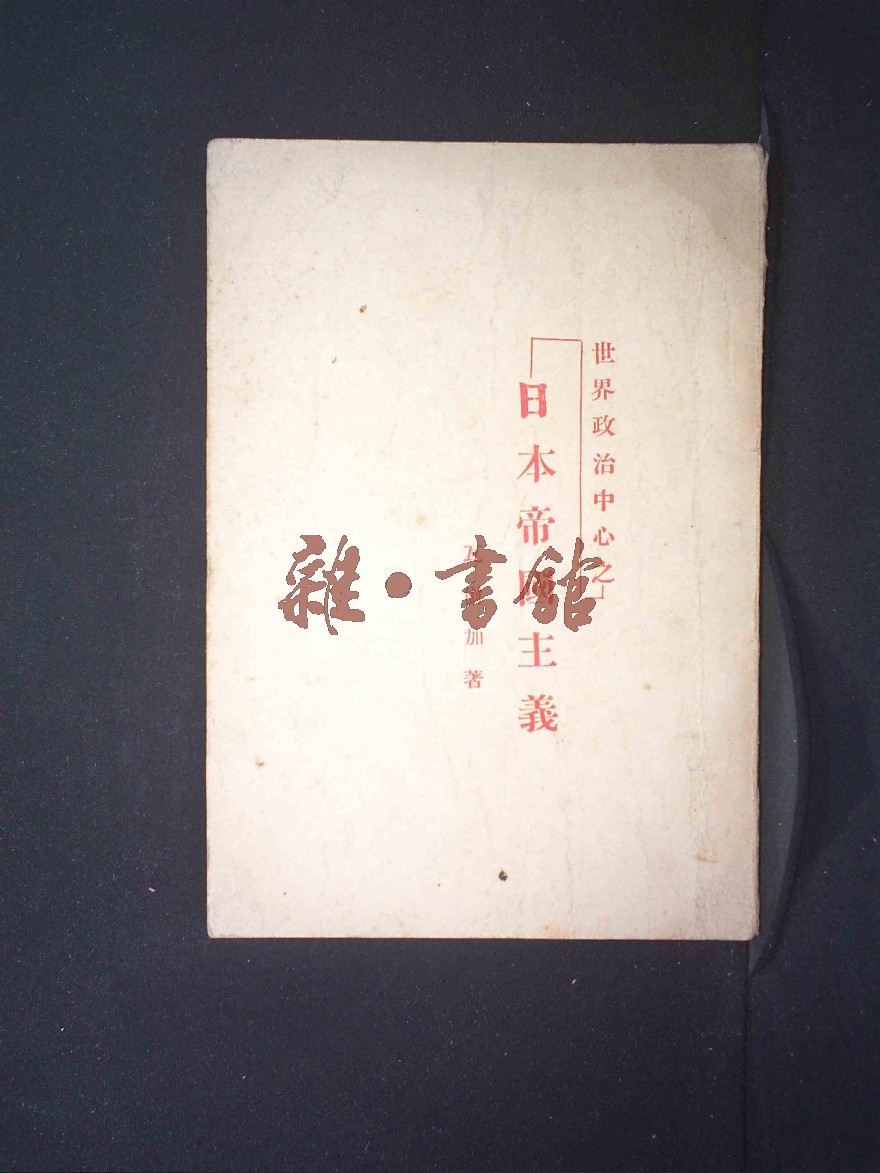 世界政治中心之」
「日本帝國主義
加著
雜·書館